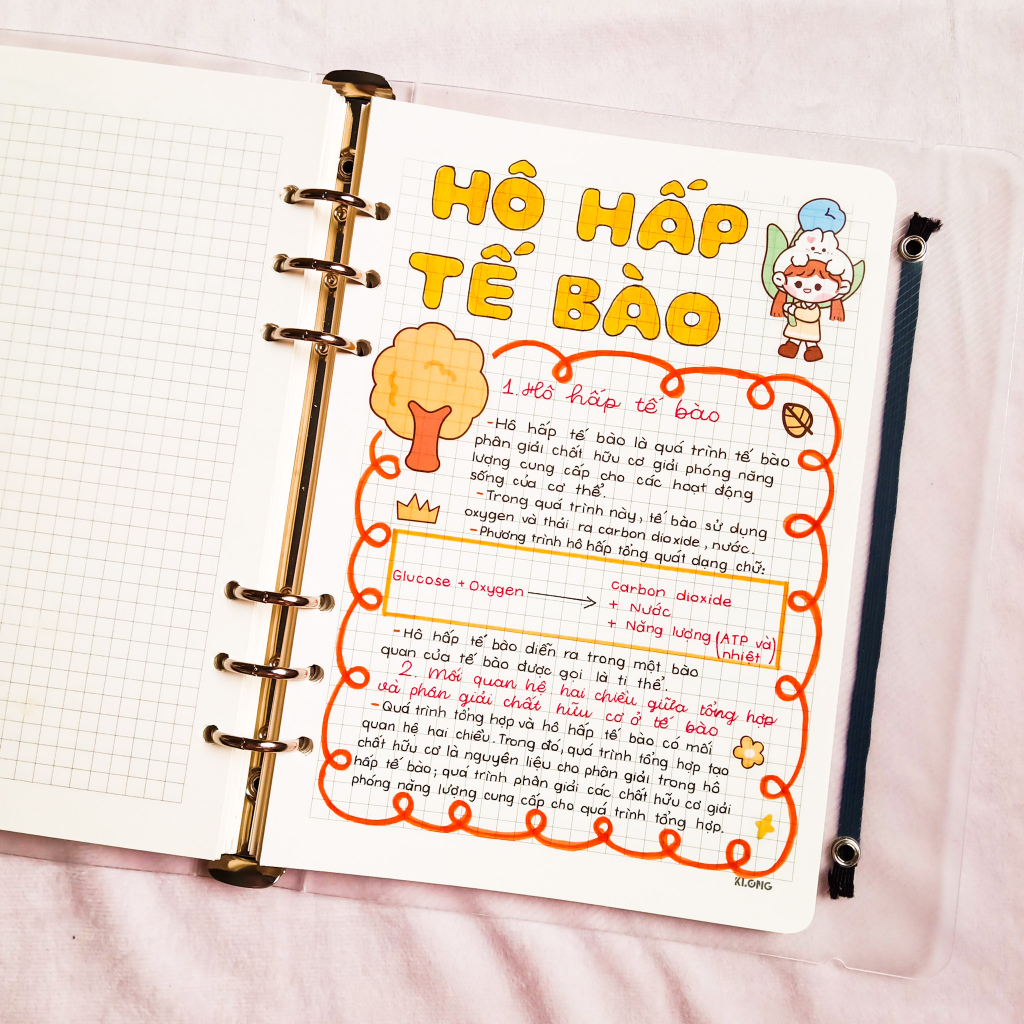 HÔ HẤP
TẾ BÀO
1. Hô hấp tế bào
- Hô hấp tế bào là quá trình tế bào
phân giải chất hữu cơ giải phóng năng
lượng cung cấp cho các hoạt động
sống của cơ thể.
- Trong quá trình này, tế bào sử dụng
oxygen và thải ra carbon dioxide, nước.
- Phương trình hô hấp tổng quát dạng chữ:
Glucose + Oxygen → Carbon dioxide
+ Nước
+ Năng lượng (ATP và
nhiệt)
- Hô hấp tế bào diễn ra trong một bào
quan của tế bào được gọi là ti thể.
2. Mối quan hệ hai chiều giữa tổng hợp
và phân giải chất hữu cơ ở tế bào
- Quá trình tổng hợp và hô hấp tế bào có mối
quan hệ hai chiều. Trong đó, quá trình tổng hợp tạo
chất hữu cơ là nguyên liệu cho phân giải trong hô
hấp tế bào; quá trình phân giải các chất hữu cơ giải
phóng năng lượng cung cấp cho quá trình tổng hợp.
KLONG